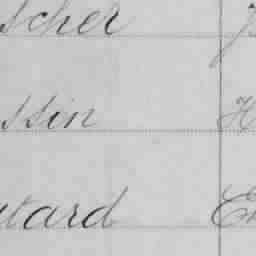 scher J
ssin H
utard Er